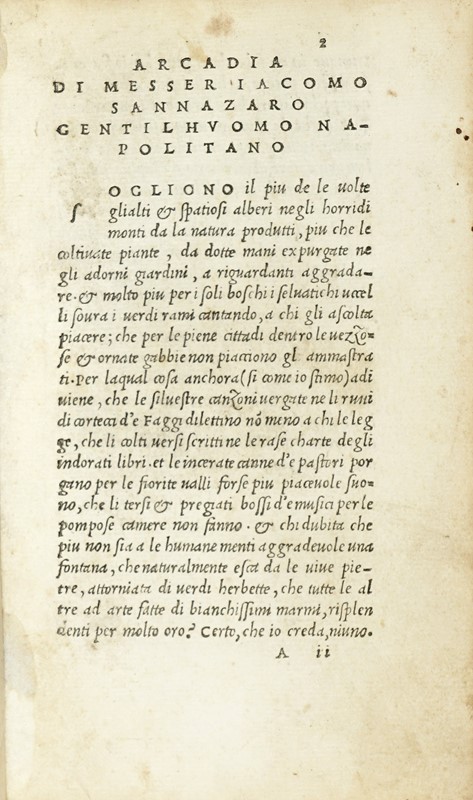 2
ARCADIA
DI MESSER IACOMO
SANNAZARO
GENTILHVOMO NA-
POLITANO
OGLIONO il piu de le uolte
ſ glialti & ſpatioſi alberi negli horridi
monti da la natura produtti, piu che le
coltiuate piante, da dotte mani expurgate ne
gli adorni giardini, a riguardanti aggrada-
re. & molto piu per i ſoli boſchi i ſeluatichi uccel
li ſoura i uerdi rami cantando, a chi gli aſcolta
piacere; che per le piene cittadi dentro le uezzo-
ſe & ornate gabbie non piacciono gl ammaſtra
ti. Per laqual coſa anchora (ſi come io ſtimo) adi
uiene, che le ſilueſtre canzoni uergate ne li ruui
di cortecci d'e Faggi dilettino nō meno a chi le leg
ge, che li colti uerſi ſcritti ne le raſe charte degli
indorati libri. et le incerate canne d'e paſtori por
gano per le fiorite ualli forſe piu piaceuole ſuo-
no, che li terſi & pregiati boſſi d'e muſici per le
pompoſe camere non fanno. & chi dubita che
piu non ſia a le humane menti aggradeuole una
fontana, che naturalmente eſca da le uiue pie-
tre, attorniata di uerdi herbette, che tutte le al
tre ad arte fatte di bianchiſſimi marmi, riſplen
denti per molto oro? Certo, che io creda, niuno.
A ii